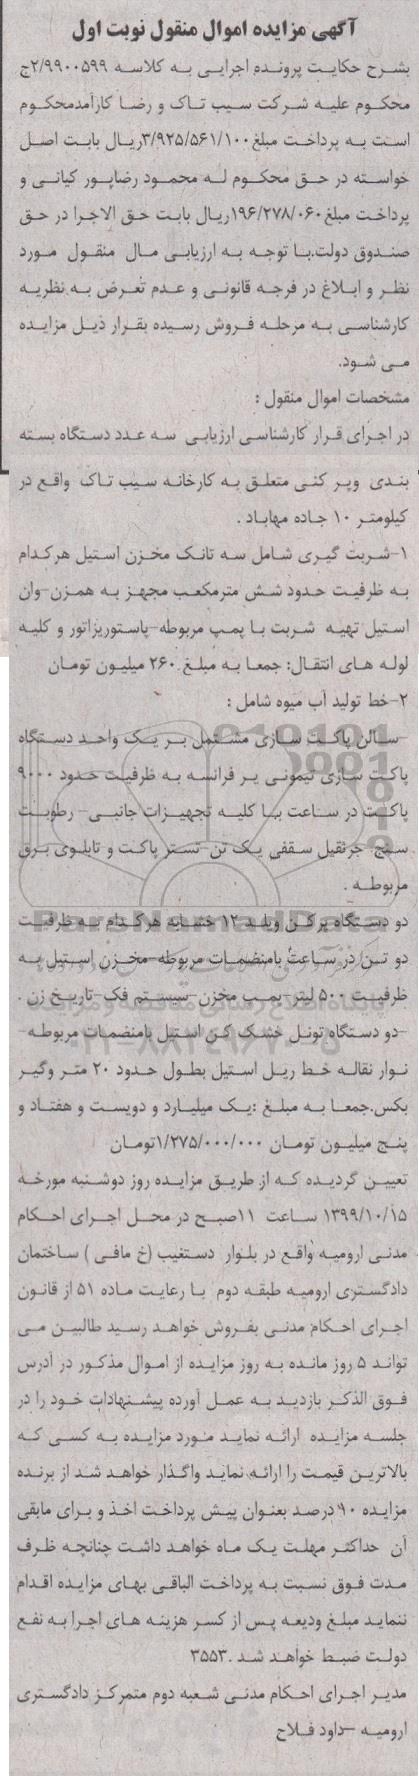 آگهی مزایده اموال منقول نوبت اول
بشرح حکایت پرونده اجرایی به کلاسه ۲/۹۹۰۰۵۹۹ج
محکوم علیه شرکت سیب تاک و رضا کارآمدمحکوم
است به پرداخت مبلغ۳/۹۲۵/۵۶۱/۱۰۰ریال بابت اصل
خواسته در حق محکوم له محمود رضاپور کیانی و
پرداخت مبلغ۱۹۶/۲۷۸/۰۶۰ریال بابت حق الاجرا در حق
صندوق دولت.با توجه به ارزیابی مال منقول مورد
نظر و ابلاغ در فرجه قانونی و عدم تعرض به نظریه
کارشناسی به مرحله فروش رسیده بقرار ذیل مزایده
می شود.
مشخصات اموال منقول :
در اجرای قرار کارشناسی ارزیابی سه عدد دستگاه بسته
بندی وپر کنی متعلق به کارخانه سیب تاک واقع در
کیلومتر ۱۰ جاده مهاباد .
۱-شربت گیری شامل سه تانک مخزن استیل هرکدام
به ظرفیت حدود شش مترمکعب مجهز به همزن-وان
استیل تهیه شربت با پمپ مربوطه-پاستوریزاتور و کلیه
لوله های انتقال: جمعا به مبلغ ۲۶۰ میلیون تومان
۲-خط تولید آب میوه شامل :
-سالن پاکت سازی مشتمل بر یک واحد دستگاه
پاکت سازی تیمونی یر فرانسه به ظرفیت حدود ۹۰۰۰
پاکت در ساعت با کلیه تجهیزات جانبی- رطوبت
سنج- جرثقیل سقفی یک تن-تستر پاکت و تابلوی برق
مربوطه .
دو دستگاه پرکن ویلد ۱۲ خشابه هرکدام به ظرفیت
دو تن در ساعت بامنضمات مربوطه-مخزن استیل به
ظرفیت ۵۰۰ لیتر-پمپ مخزن-سیستم فک-تاریخ زن .
-دو دستگاه تونل خشک کن استیل بامنضمات مربوطه-
نوار نقاله خط ریل استیل بطول حدود ۲۰ متر وگیر
بکس.جمعا به مبلغ :یک میلیارد و دویست و هفتاد و
پنج میلیون تومان ۱/۲۷۵/۰۰۰/۰۰۰تومان
تعیین گردیده که از طریق مزایده روز دوشنبه مورخه
۱۳۹۹/۱۰/۱۵ ساعت ۱۱صبح در محل اجرای احکام
مدنی ارومیه واقع در بلوار دستغیب (خ مافی ) ساختمان
دادگستری ارومیه طبقه دوم با رعایت ماده ۵۱ از قانون
اجرای احکام مدنی بفروش خواهد رسید طالبین می
تواند ۵ روز مانده به روز مزایده از اموال مذکور در آدرس
فوق الذکر بازدید به عمل آورده پیشنهادات خود را در
جلسه مزایده ارائه نماید مورد مزایده به کسی که
بالاترین قیمت را ارائه نماید واگذار خواهد شد از برنده
مزایده ۱۰ درصد بعنوان پیش پرداخت اخذ و برای مابقی
آن حداکثر مهلت یک ماه خواهد داشت چنانچه ظرف
مدت فوق نسبت به پرداخت الباقی بهای مزایده اقدام
ننماید مبلغ ودیعه پس از کسر هزینه های اجرا به نفع
دولت ضبط خواهد شد .۳۵۵۳
مدیر اجرای احکام مدنی شعبه دوم متمرکز دادگستری
ارومیه -داود فلاح
ParsNamadData
۰۲۱-۸۸۳۴۹۶۷۰-۵